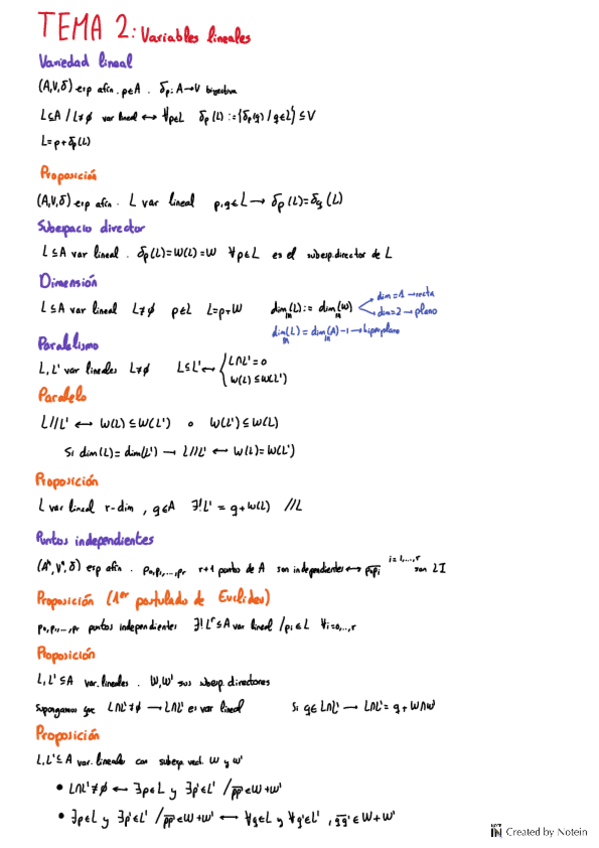 TEMA 2: Variables lineales
Variedad lineal
(A,V,δ) esp afín. p∈A . δp: A→V biyectiva
L⊆A / L≠∅ var lineal ↔ ∀p∈L δp(L):={δp(q)/q∈L}⊆V
L=p+δp(L)
Proposición
(A,V,δ) esp afín. L var lineal p,q∈L → δp(L)=δq(L)
Subespacio director
L⊆A var lineal . δp(L)=W(L)=W ∀p∈L es el subesp.director de L
Dimensión
L⊆A var lineal L≠∅ p∈L L=p+W dim(L):= dim(W) dim=1→recta
dim=2→plano
dim(L)=dim(A)-1→hiperplano
Paralelismo
L,L' var lineales L≠∅ L≤L'↔ { L∩L'=0
W(L)≤W(L')
Paralelo
L//L' ↔ W(L)⊆W(L') o W(L')⊆W(L)
Si dim(L)=dim(L') → L//L' ↔ W(L)=W(L')
Proposición
L var lineal r-dim , q∈A ∃!L'=q+W(L) //L
Puntos independientes
(Aⁿ,Vⁿ,δ) esp afín . p0,p1,...,pr r+1 puntos de A son independientes↔ p0pi i=1,...,r son LI
Proposición (1er postulado de Euclides)
p0,p1,...,pr puntos independientes ∃!Lʳ⊆A var lineal /pi∈L ∀i=0,...,r
Proposición
L,L'⊆A var.lineales . W,W' sus subesp.directores
Supongamos que L∩L'≠∅ → L∩L' es var lineal Si q∈L∩L' → L∩L'=q+W∩W'
Proposición
L,L'⊆A var.lineales con subesp vect. W y W'
• L∩L'≠∅ ↔ ∃p∈L y ∃p'∈L' / pp'∈W+W'
• ∃p∈L y ∃p'∈L' / pp'∈W+W' ↔ ∀q∈L y ∀q'∈L' , qq'∈W+W'
NOTE IN Created by Notein